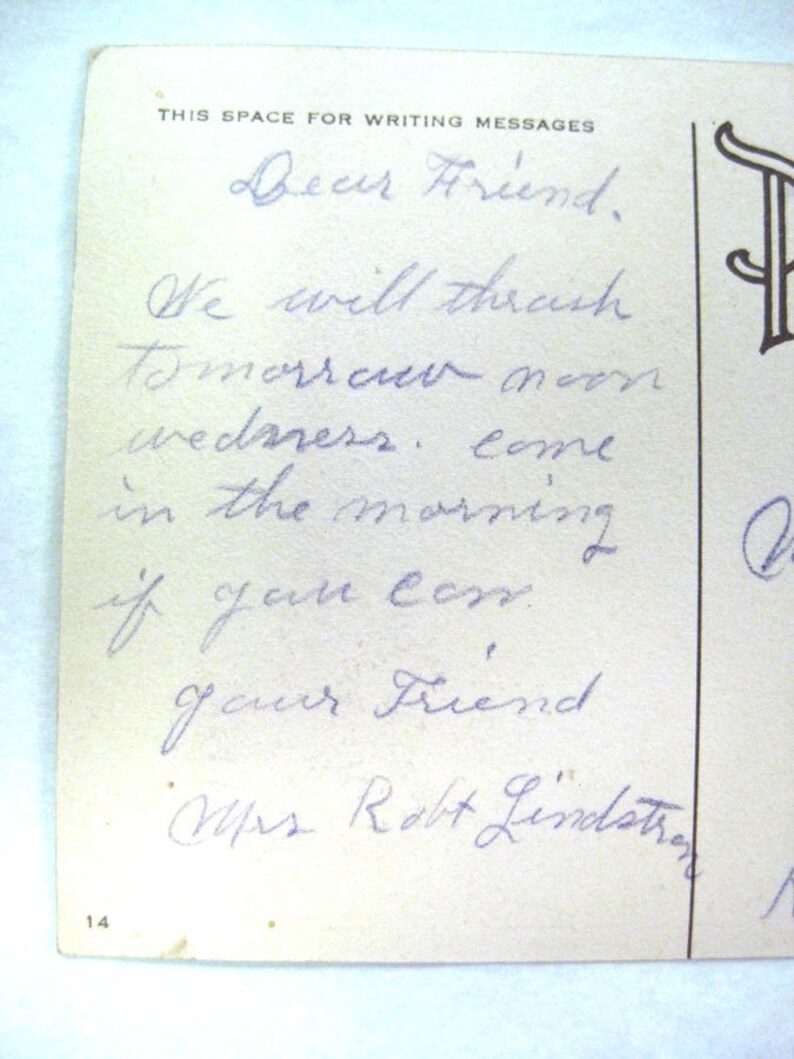 THIS SPACE FOR WRITING MESSAGES
Dear Friend.
We will thrash
tomorrow noon
wedness. come
in the morning
if you can
your Friend
Mrs Robt Lindstrom
14